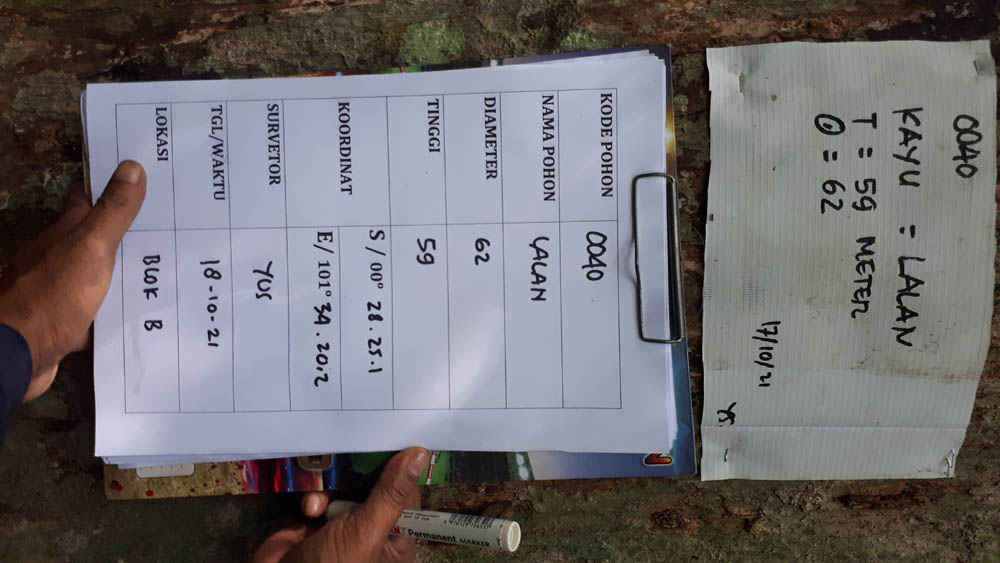 0040
KAYU = LALAN
T = 59 METER
Ø = 62
17/10/21
YS
KODE POHON 0040
NAMA POHON LALAN
DIAMETER 62
TINGGI 59
KOORDINAT S / 00° 28.25.1
E/ 101° 34.20.2
SURVETOR YUS
TGL/WAKTU 18-10-21
LOKASI BLOK B
Permanent MARKER